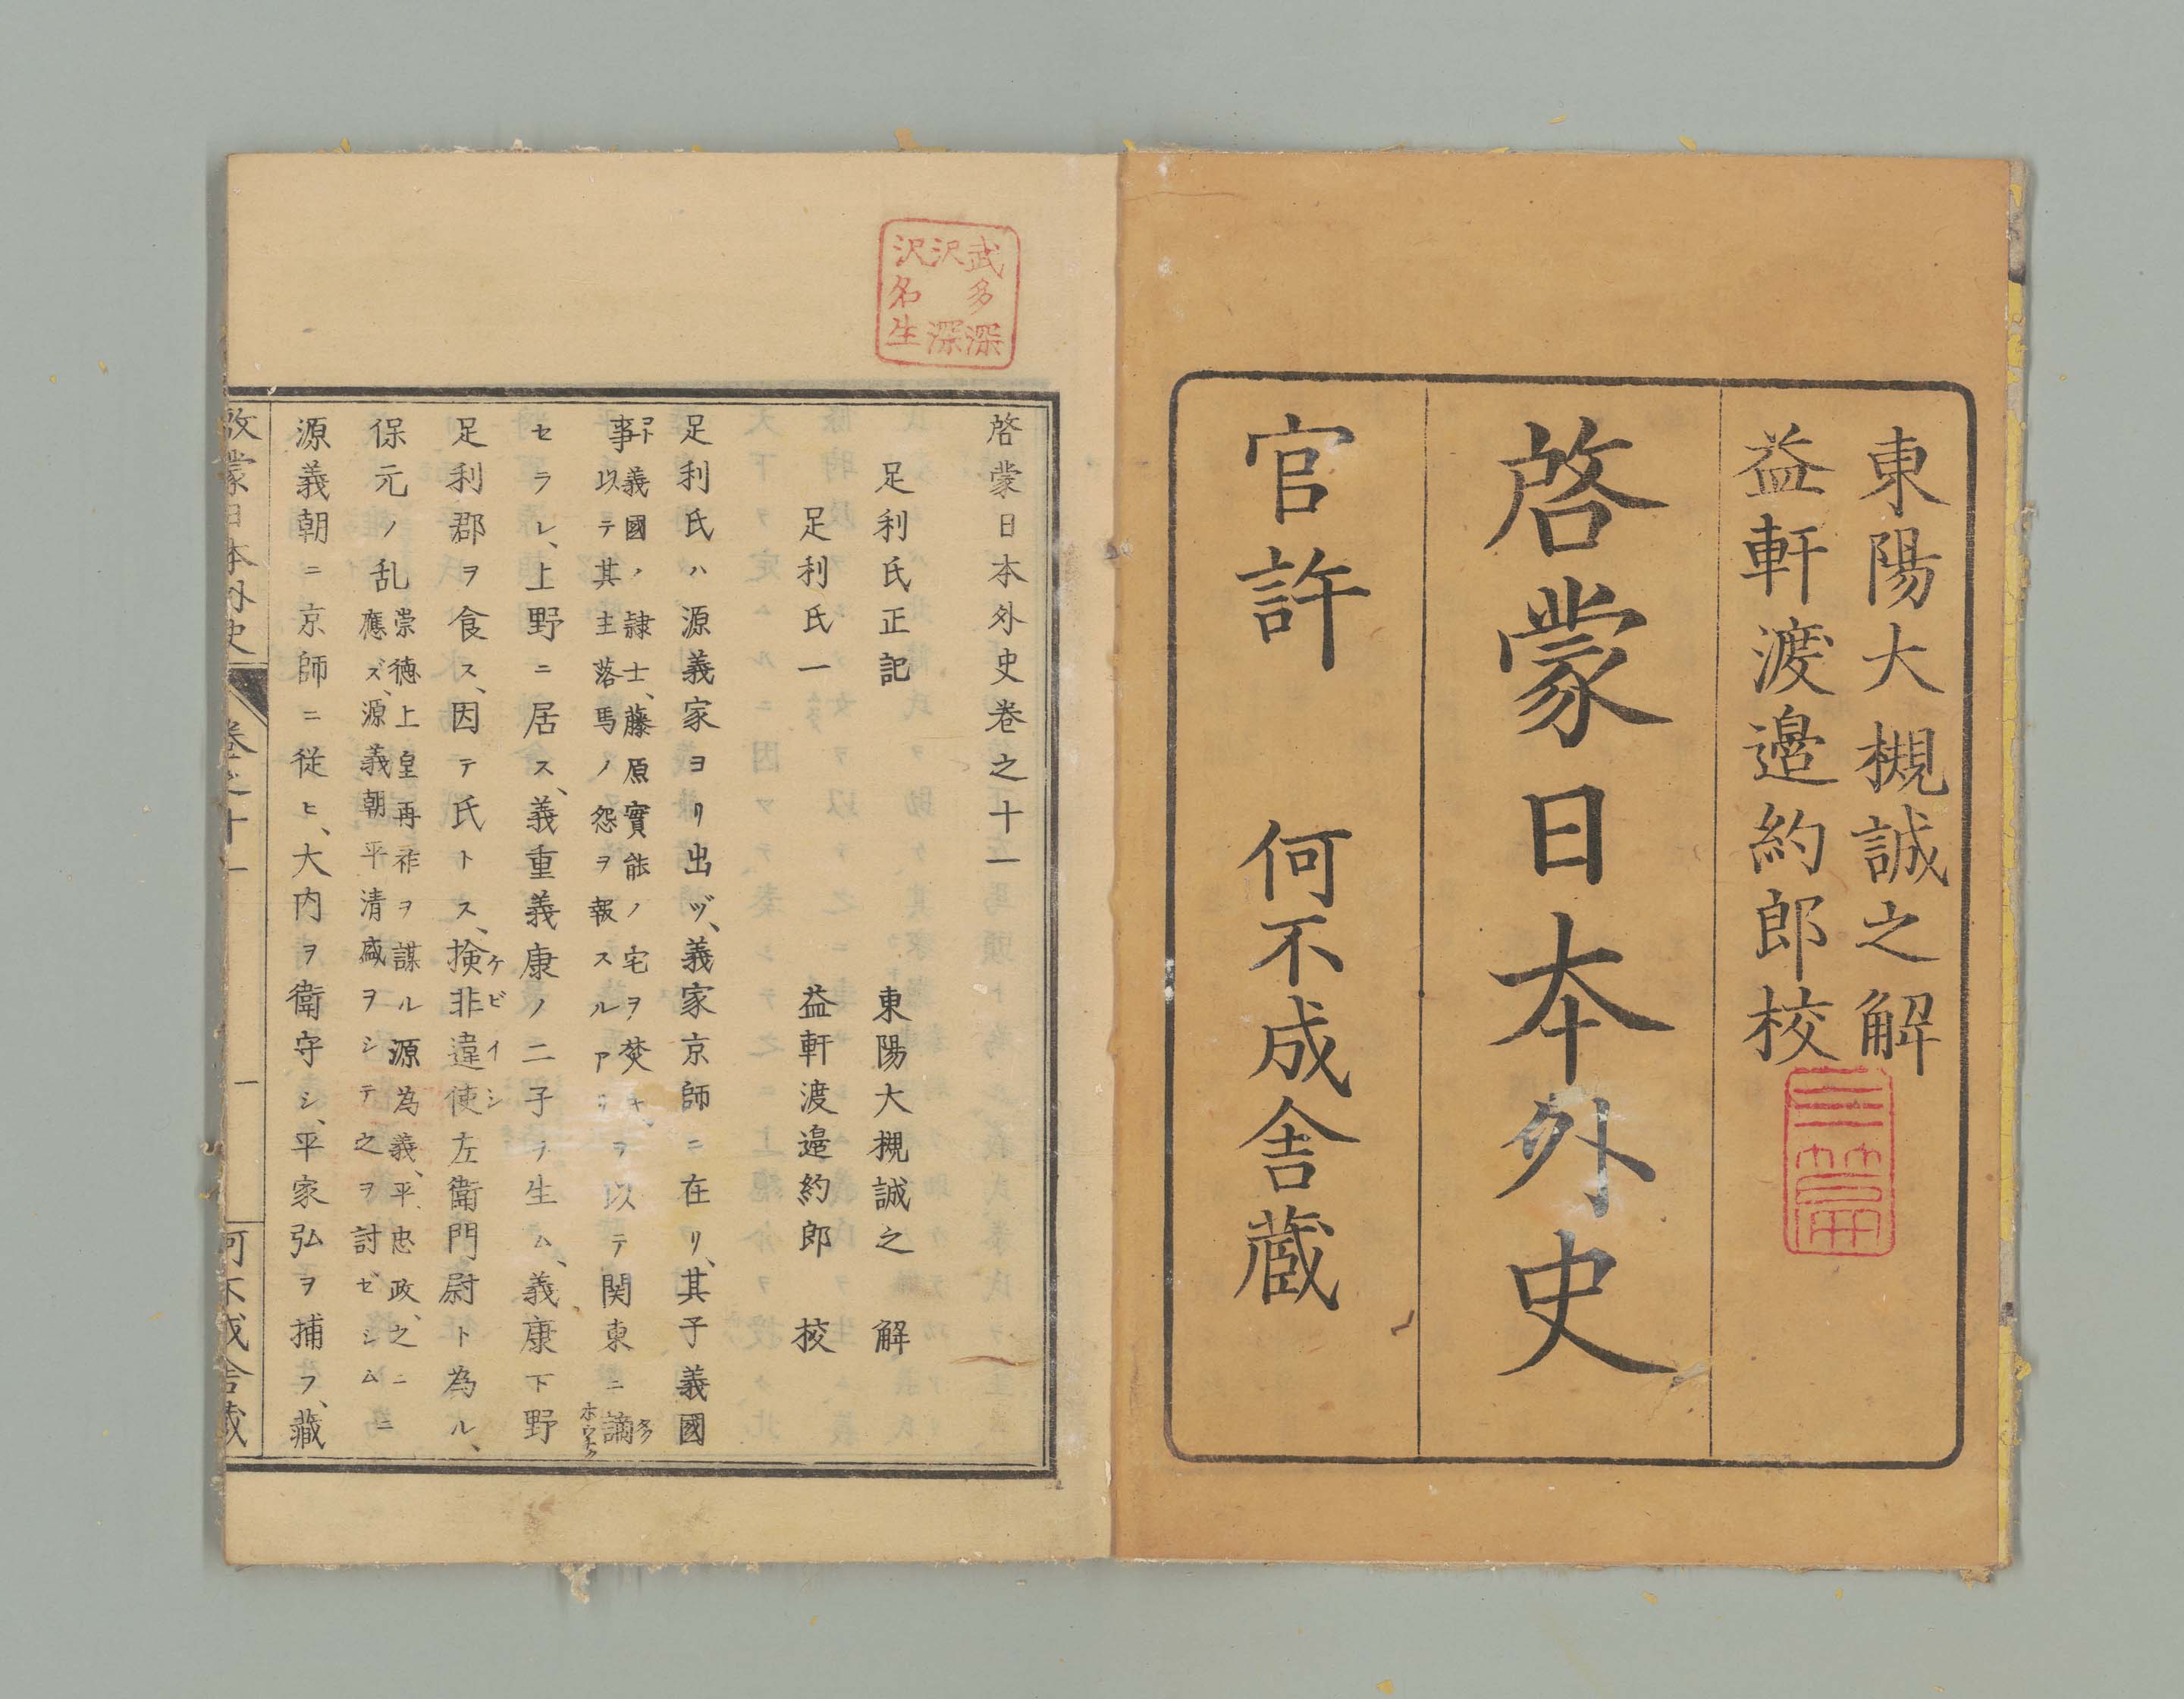 東陽大槻誠之解
益軒渡邉約郎校
啓蒙日本外史
官許 何不成舎蔵
武多深
沢深
沢名生
啓蒙日本外史巻之十一
足利氏正記 東陽大槻誠之 解
足利氏一 益軒渡邉約郎 校
足利氏ハ源義家ヨリ出ヅ、義家京師ニ在リ、其子義國
事ヿト義國ノ隷士、藤原實能ノ宅ヲ焚キ、
以テ其主落馬ノ怨ヲ報スルアリヲ以テ関東ニ謫
セラレ、上野ニ居ス、義重義康ノ二子ヲ生ム、義康下野
足利郡ヲ食ス、因テ氏トス、検非違使左衛門尉ト為ル、
ケビイシ
保元ノ乱
崇徳上皇再祚ヲ謀ル源為義、平忠政、之ニ
應ズ、源義朝平清盛ヲシテ之ヲ討ゼシム
ニ
源義朝ニ京師ニ従ヒ、大内ヲ衛守シ、平家弘ヲ捕フ、蔵
啓蒙日本外史
巻之十一
一
何不成舎蔵